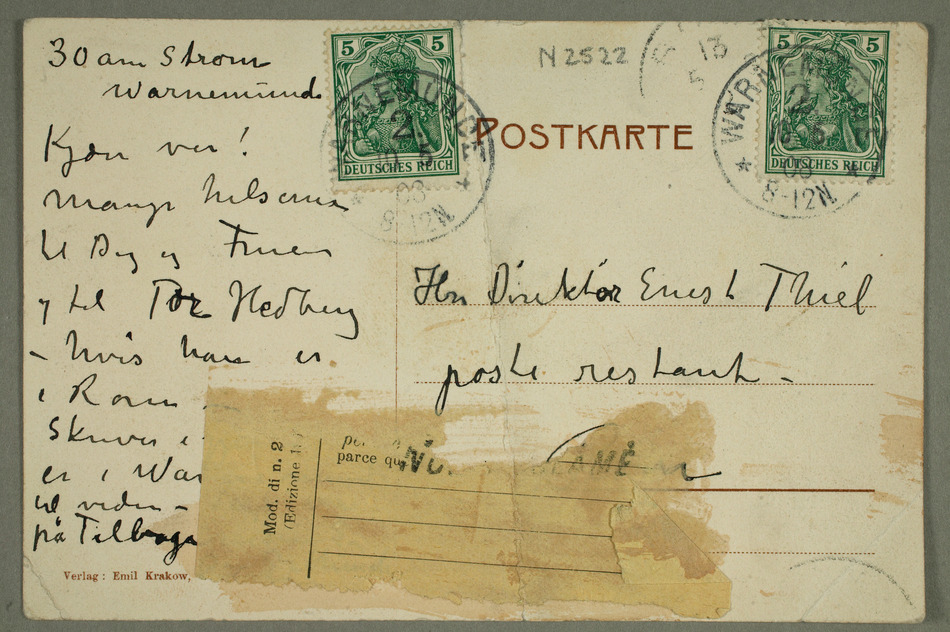 30 am Strom
Warnemünde
Kjære ven!
Mange hilsener
til Dig og Fruen
og til Tor Hedberg
– hvis han er
i Rom –
Skriver
er i War
til viden –
på Tilbage
Verlag: Emil Krakow,
5 5
DEUTSCHES REICH
WARNEMÜNDE
2
5
08
8-12N.
N 2522
POSTKARTE
13
5
5 5
DEUTSCHES REICH
WARNEMÜNDE
2
08
8-12N.
Hrr Direktör Ernest Thiel
poste restante –
Mod. di n. 2
(Edizione
parce qu